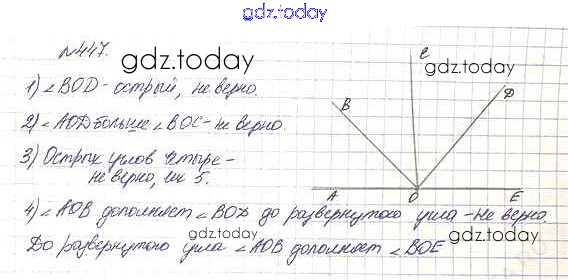 gdz.today
№447.
gdz.today
1) ∠BOD - острый, не верно.
2) ∠AOD больше ∠BOC - не верно.
3) Острых углов четыре -
не верно, их 5.
C
gdz.today
B
D
A
O
E
4) ∠AOB дополняет ∠BOD до развернутого угла - не верно.
gdz.today
До развернутого угла ∠AOB дополняет ∠BOE
gdz.today